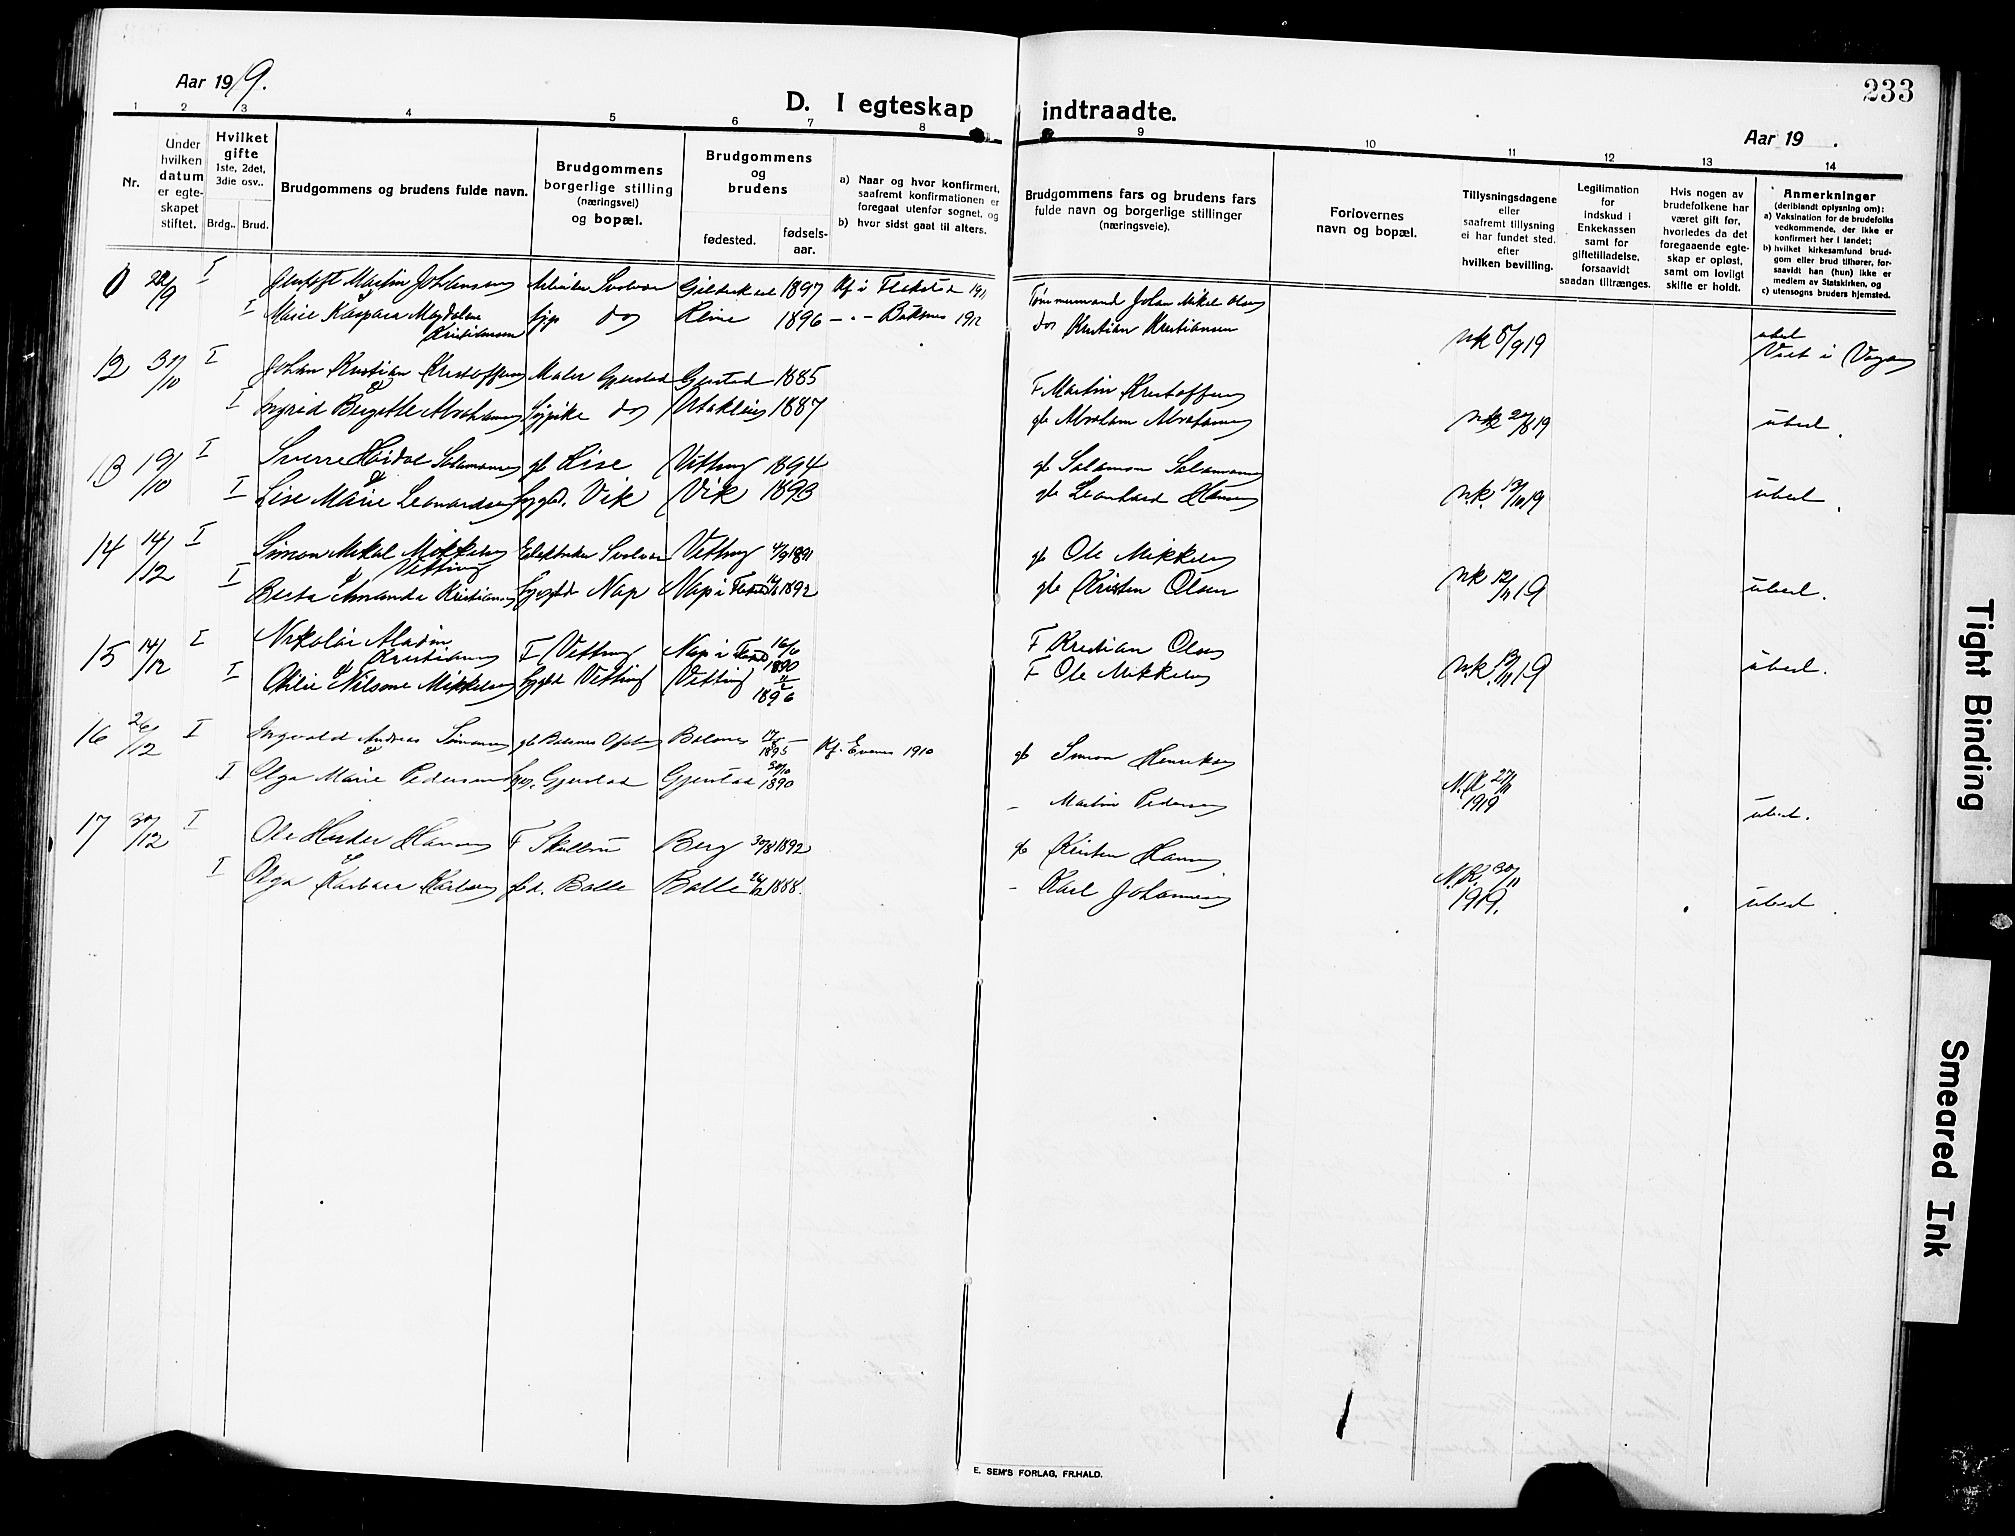 Aar 1919.
D. I egteskap indtraadte.
233
Aar 19 .
1 2 3 4 5 6 7 8 9 10 11 12 13 14
Nr.
Under hvilken datum er egteskapet stiftet.
Hvilket gifte 1ste, 2det, 3die osv..
Brdg.. Brud.
Brudgommens og brudens fulde navn.
Brudgommens borgerlige stilling (næringsvei) og bopæl.
Brudgommens og brudens
fødested. fødselsaar.
a) Naar og hvor konfirmert, saafremt konfirmationen er foregaat utenfor sognet, og
b) hvor sidst gaat til alters.
Brudgommens fars og brudens fars fulde navn og borgerlige stillinger (næringsveie).
Forlovernes navn og bopæl.
Tillysningsdagene eller saafremt tillysning ei har fundet sted, efter hvilken bevilling.
Legitimation for indskud i Enkekassen samt for giftetilladelse, forsaavidt saadan tiltrænges.
Hvis nogen av brudefolkene har været gift før, hvorledes da det foregaaende egteskap er opløst, samt om lovligt skifte er holdt.
Anmerkninger (deriblandt oplysning om):
a) Vaksination for de brudefolks vedkommende, der ikke er konfirmert her i landet;
b) hvilket kirkesamfund brudgom eller brud tilhører, forsaavidt han (hun) ikke er medlem av Statskirken, og
c) utensogns bruders hjemsted.
I Martin Johansen Svolvær Gildeskaal 1897 Kf i Flakstad 1911 Tømmermand Johan Mikal Olsen
I Marie Kaspara Magdalene Kristiansen do Reine 1896 — " — Buksnes 1912 do Kristian Kristiansen nk 5/9 19 ubesl Viet i Vågan
12 31/10 I Johan Kristian Kristoffersen Maler Gjerstad Gjerstad 1885 F Martin Kristoffersen
I Ingrid Bergitte Abrahamsen do Utakleiv 1887 gb Abraham Abrahamsen ubesl.
13 19/10 I Sverre Hoidal Salamonsen gb Lise Vetting 1894 gb Salamon Salamonsen
I Lise Marie Leonardsen Vik Vik 1893 gb Leonhard Hansen n.k. ubesl.
14 14/12 I Simon Mikal Mikkelsen Vetting Elektriker Svolvær Vetting 1891 gb Ole Mikkelsen
I Berta Amanda Kristiansen Nap Nap i Flakstad 1892 gb Kristen Olsen nk 12/11 19 ubesl.
15 14/12 I Nikolai Martin Kristiansen F Vetting Nap i Flakstad 16/6 1890 F Kristian Olsen
I Otilie Nilsine Mikkelsen Vetting Vetting 1896 F Ole Mikkelsen n.k. 13/11 19 ubesl.
16 26/12 I Ingvald Andreas Simonsen gb Balsnes Ofoten Balsnes 1895 Kf. Evenes 1910 gb Simon Henriksen
I Olga Marie Pedersen Gjerstad Gjerstad 30/10 1890 — Martin Pedersen N.K. 27/11 1919 ubesl.
17 30/12 I Ole Hansen F Berg 30/8 1892 gb Kristen Hansen
I Olga Barbara Karlsen Balle Balle 1888. — Karl Johannesen N.K. 30/11 1919. ubesl.
E. SEM'S FORLAG, FR.HALD.
Tight Binding
Smeared Ink